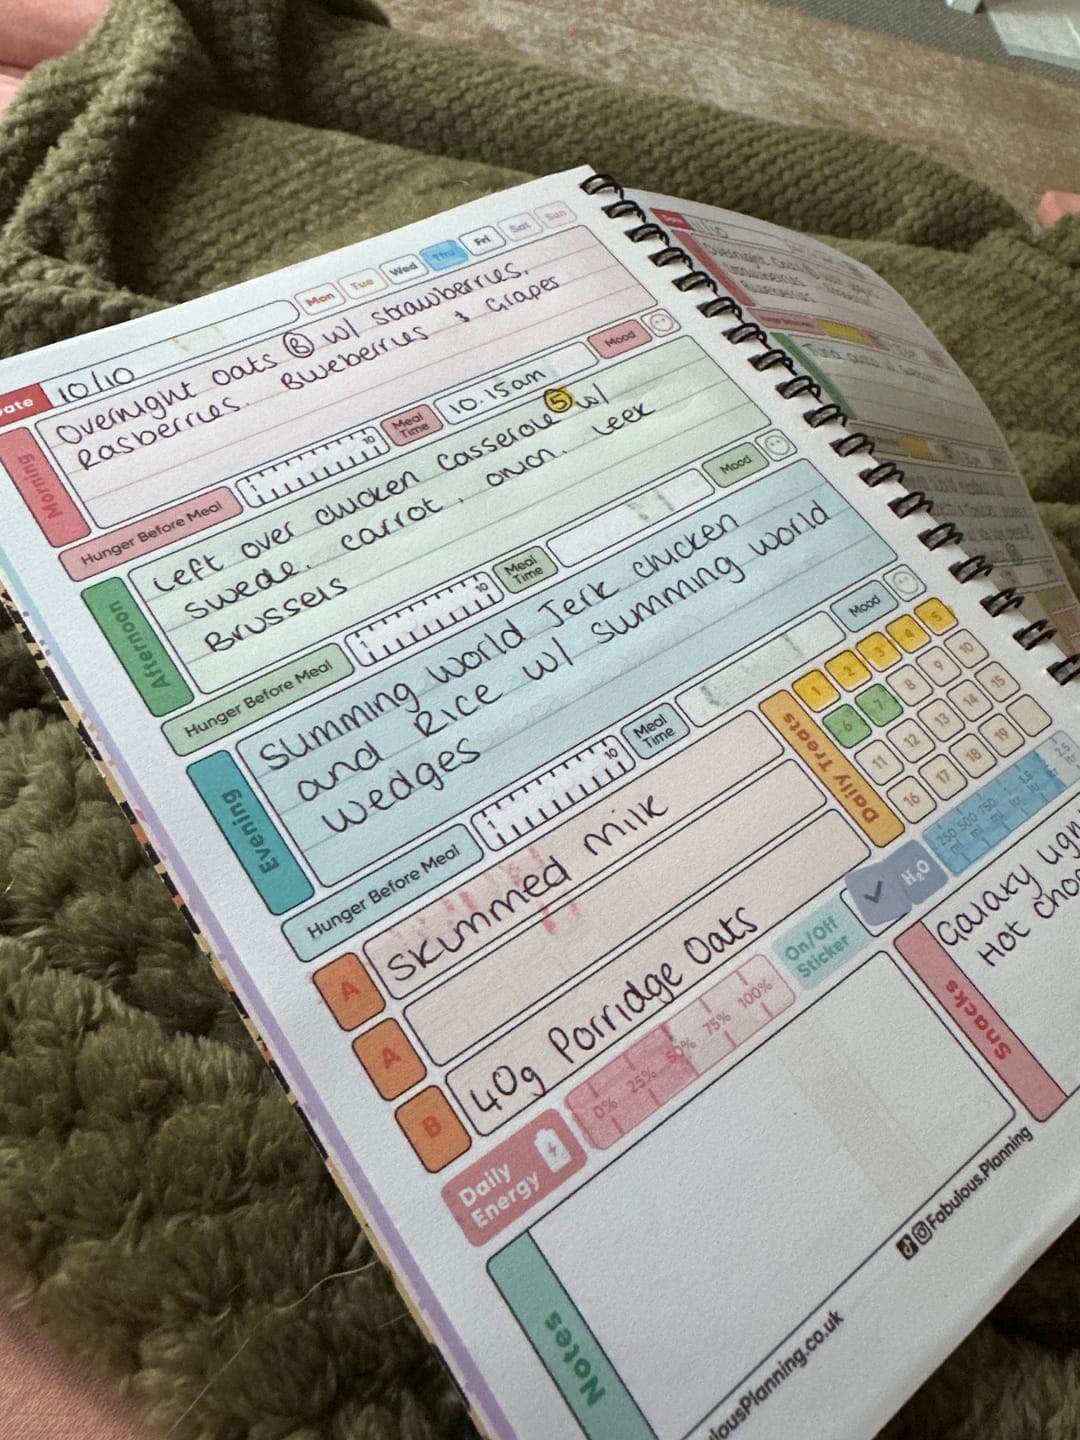 Mon Tue Wed Thu Fri Sat Sun
Date 10/10
Morning
Overnight Oats Ⓑ w/ strawberries,
Rasberries. Blueberries & Grapes
Hunger Before Meal 1 10 Meal Time 10.15am Mood
Afternoon
Left over chicken casserole ⑤ w/
swede, carrot, onion, leek
Brussels
Hunger Before Meal 1 10 Meal Time Mood
Evening
Slimming world Jerk chicken
and Rice w/ slimming world
wedges
Hunger Before Meal 1 10 Meal Time Mood
A Skimmed milk
A
B 40g Porridge Oats
Daily Treats
1 2 3 4 5
6 7 8 9 10
11 12 13 14 15
16 17 18 19
H₂O 250 ml 500 ml 750 ml 1 ltr 1.5 ltr
On/Off Sticker
Daily Energy 0% 25% 50% 75% 100%
Snacks
Galaxy
Hot
Notes
@Fabulous.Planning
Planning.co.uk
Date